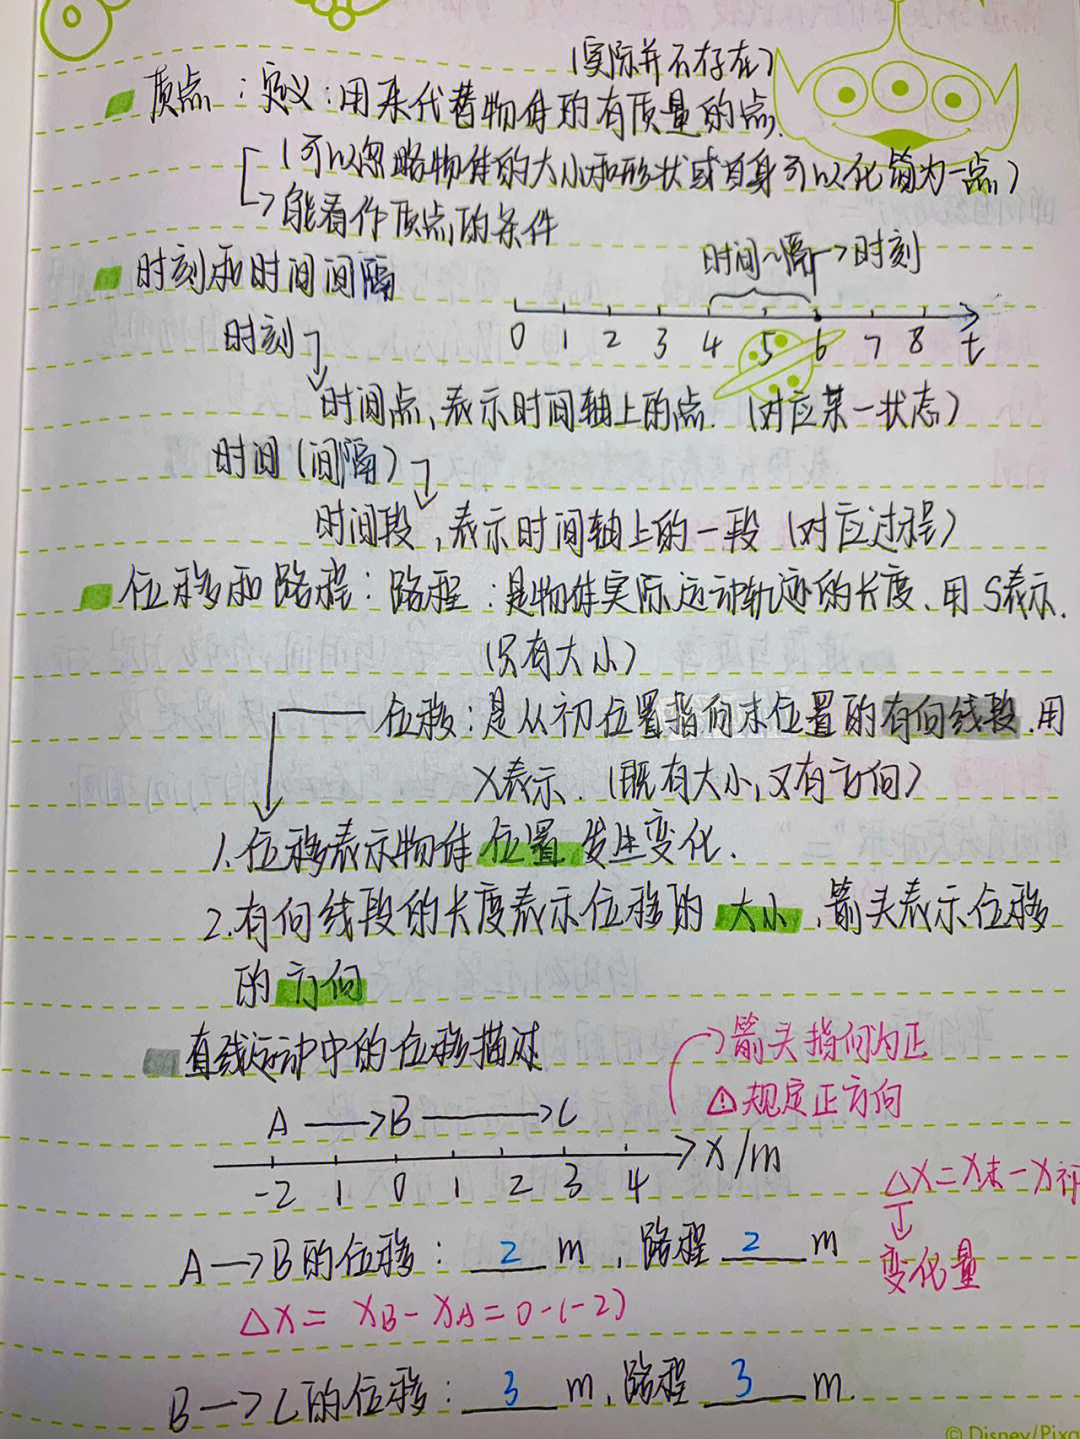 (实际并不存在)
质点:定义:用来代替物体的有质量的点.
(可以忽略物体的大小和形状或自身可以化简为一点)
→能看作质点的条件
时刻和时间间隔
时间~隔→时刻
0 1 2 3 4 5 6 7 8 t
时刻
时间点,表示时间轴上的点.(对应某一状态)
时间(间隔)
时间段,表示时间轴上的一段(对应过程)
位移和路程:路程:是物体实际运动轨迹的长度、用S表示.
(只有大小)
位移:是从初位置指向末位置的有向线段.用
X表示.(既有大小,又有方向)
1.位移表示物体位置发生变化.
2.有向线段的长度表示位移的大小,箭头表示位移
的方向
直线运动中的位移描述
→箭头指向为正
⚠规定正方向
A→B→C
-2 1 0 1 2 3 4 X/m
△X=X末-X初
↓
变化量
A→B的位移:2m,路程2m
△X=XB-XA=0-(-2)
B→C的位移:3m,路程3m.
© Disney/Pixa